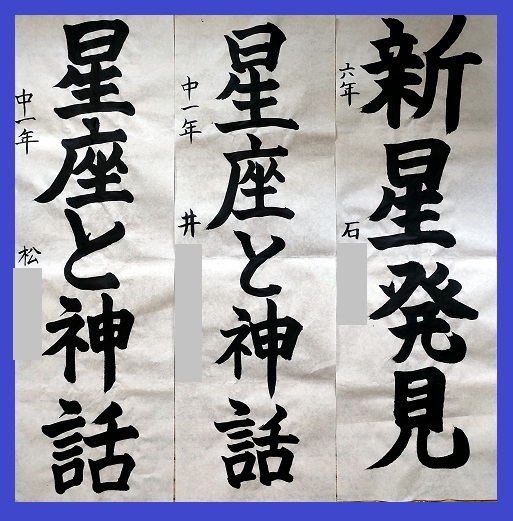 新星発見
六年 石
星座と神話
中一年 井
星座と神話
中一年 松